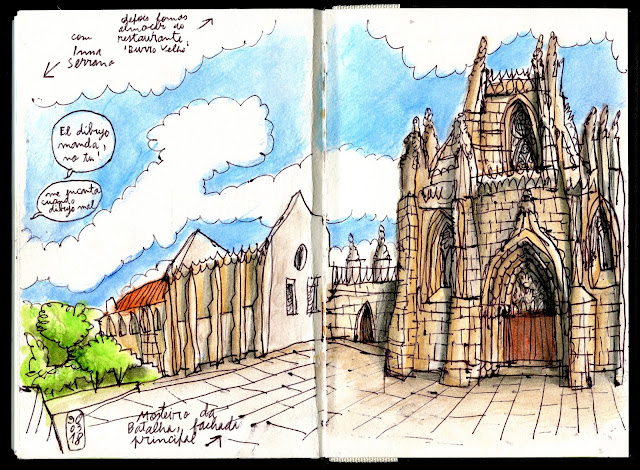 depois fomos
almoçar ao
restaurante
'Burro Velho'
com
Inma
Serrano
El dibujo
manda,
no tu!
me encanta
cuando
dibujo mal
Mosteiro da
Batalha, fachada
principal
03
18